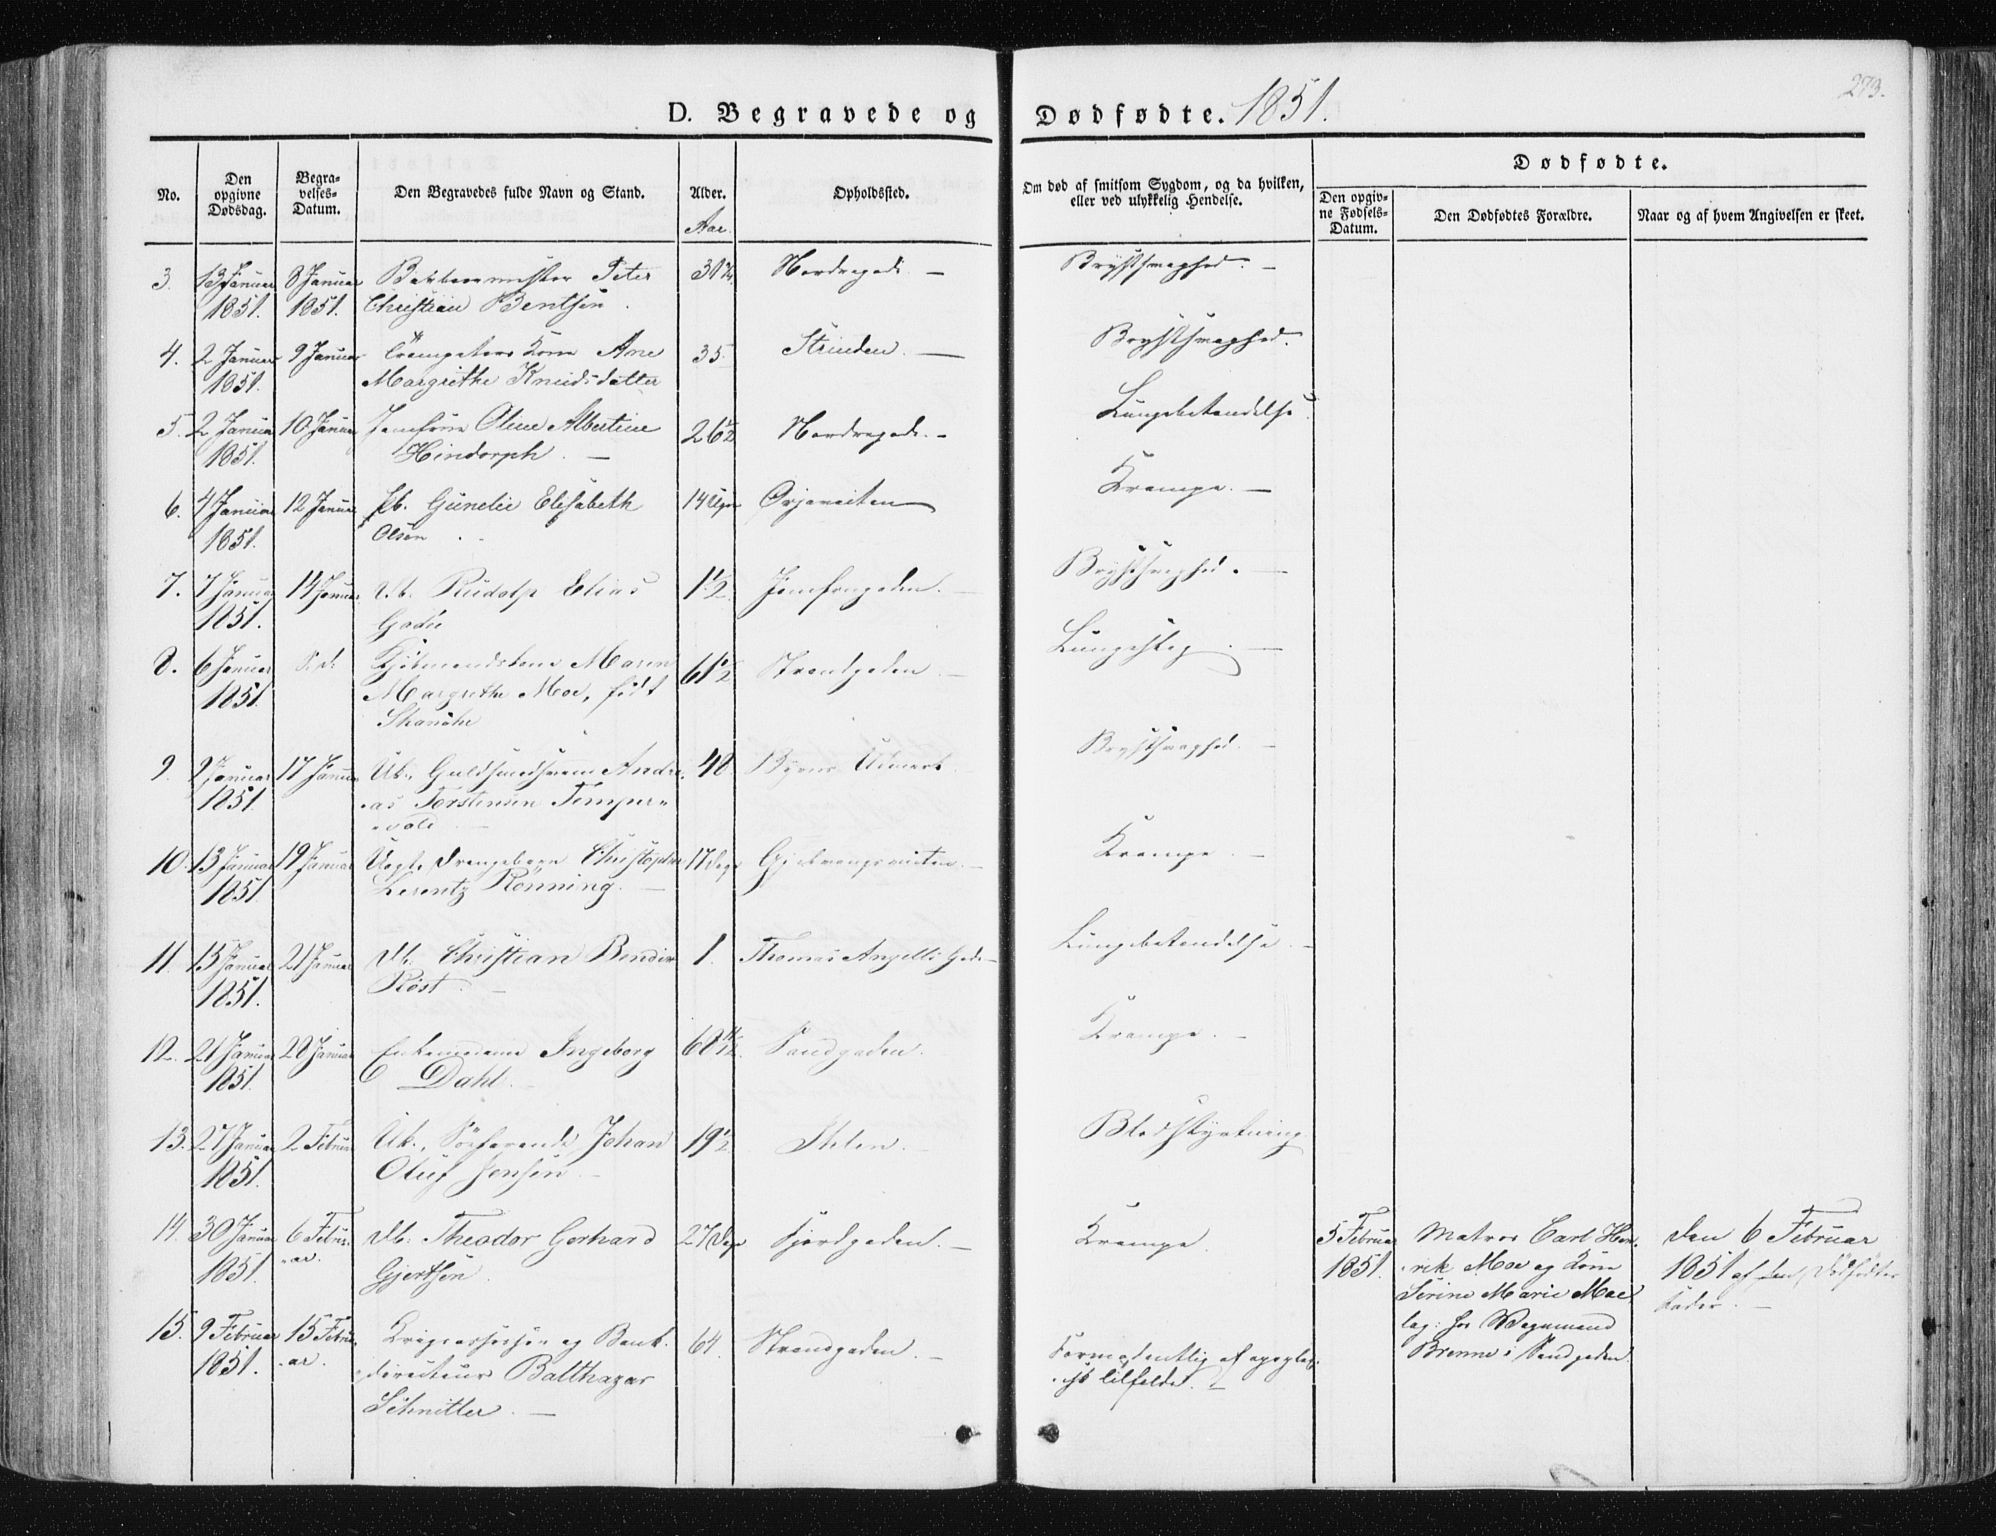 273.
D. Begravede og Dødfødte. 1851.
No.
Den opgivne Dødsdag.
Begravelses-Datum.
Den Begravedes fulde Navn og Stand.
Alder.
Aar.
Opholdssted.
Om død af smitsom Sygdom, og da hvilken, eller ved ulykkelig Hendelse.
Dødfødte.
Den opgivne Fødsels-Datum.
Den Dødfødtes Forældre.
Naar og af hvem Angivelsen er skeet.
3. Januar 8 Januar Peter Nordregade – Brystsvaghed. –
1851. 1851. Christian Bentsen.
4. 2 Januar 9 Januar Kone Ane 35 Strinden. – Brystsvaghed.
1851. Margrethe Knudsdatter
5. 2 Januar 10 Januar Jomfrue Oline Albertine 26½ Nordregade. – Lungebetændelse
1851. Hindorph. –
6. 4 Januar 12 Januar Pb. Gunelie Elisabeth 14 Uger Krampe. –
1851. Olsen
7. 7 Januar 14 Januar Rudolp Elias 1½ Jomfrugaden. – Brystsvaghed. –
1851. Gadu
8. 6 Januar S. D. Kjøbmandskone Maren 61½ Strandgaden. – Lungeslag. –
1851. Margrethe Moe, født
9. 9 Januar 17 Januar Uk. Guldsmedsvend Andre- 48 Byens Udmark. Brystsvaghed. –
1851. as Torstensen Temper-
vold. –
10. 13 Januar 19 Januar Uægte Drengebarn Christopher 17 Dage Krampe. –
1851. Lorentz Rønning. –
11. 15 Januar 21 Januar Db. Christian Bendix 1. Thomas Angells Gade – Lungebetændelse. –
1851. Röst.
12. 21 Januar 28 Januar Enkemadame Ingeborg 68 Sandgaden. Krampe. –
1851. Dahl. –
13. 27 Januar 2 Februar Uk., Söefarende Johan 19½ Ihlen. Blodstyrtning
1851. Oluf Jensen. –
14. 30 Januar 6 Febru- Db. Theodor Gerhard 27 Dage Fjordgaden. – Krampe. 5 Februar Matros Carl Hen- Den 6 Februar
1851. ar. Gjertsen. 1851. rik Moe og Kone 1851 af den Dödfödtes
Serine Marie Moe, Fader. –
15. 9 Februar 15 Febru- og Bank- 64. Strandgaden. – Formodentlig af apoplek- lag: hos Vognmand
1851. ar. directeur Balthazar tisk tilfælde. – Brenne i Sandgaden.
Schnitler. –